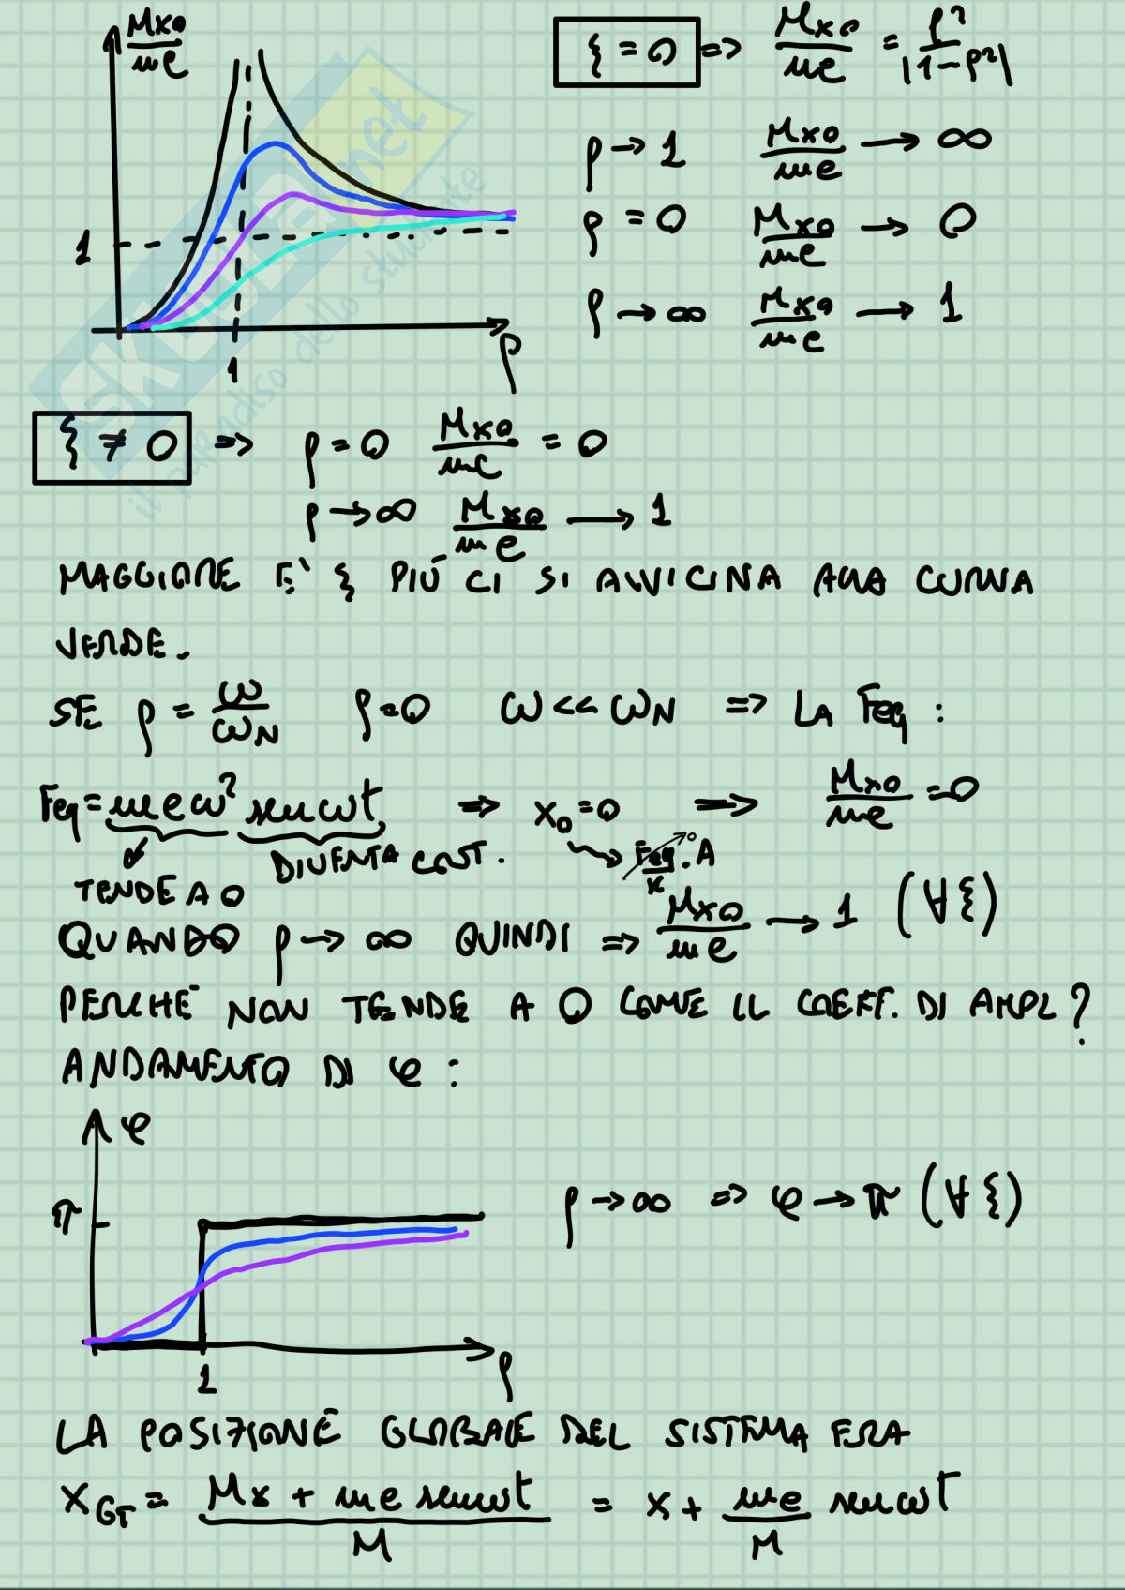 Mx₀/me
1
1
ρ
ξ = 0 => Mx₀/me = ρ²/|1-ρ²|
ρ → 1 Mx₀/me → ∞
ρ = 0 Mx₀/me → 0
ρ → ∞ Mx₀/me → 1
SKUOLA.net
il paradiso dello studente
ξ ≠ 0 => ρ = 0 Mx₀/me = 0
ρ → ∞ Mx₀/me → 1
MAGGIORE E' ξ PIÙ CI SI AVVICINA ALLA CURVA
VERDE.
SE ρ = ω/ωN ρ=0 ω << ωN => LA Feq :
Feq = meω² senωt => x₀=0 => Mx₀/me = 0
TENDE A 0
DIVENTA COST.
Feq/K · A
0
QUANDO ρ → ∞ QUINDI => Mx₀/me → 1 (∀ξ)
PERCHÉ NON TENDE A 0 COME IL COEFF. DI AMPL?
ANDAMENTO DI φ :
φ
π
1
ρ
ρ → ∞ => φ → π (∀ξ)
LA POSIZIONE GLOBALE DEL SISTEMA ERA
x_GT = (Mx + me senωt)/M = x + me/M senωt